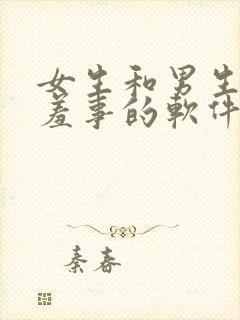 女生和男生
羞事的軟件
秦春